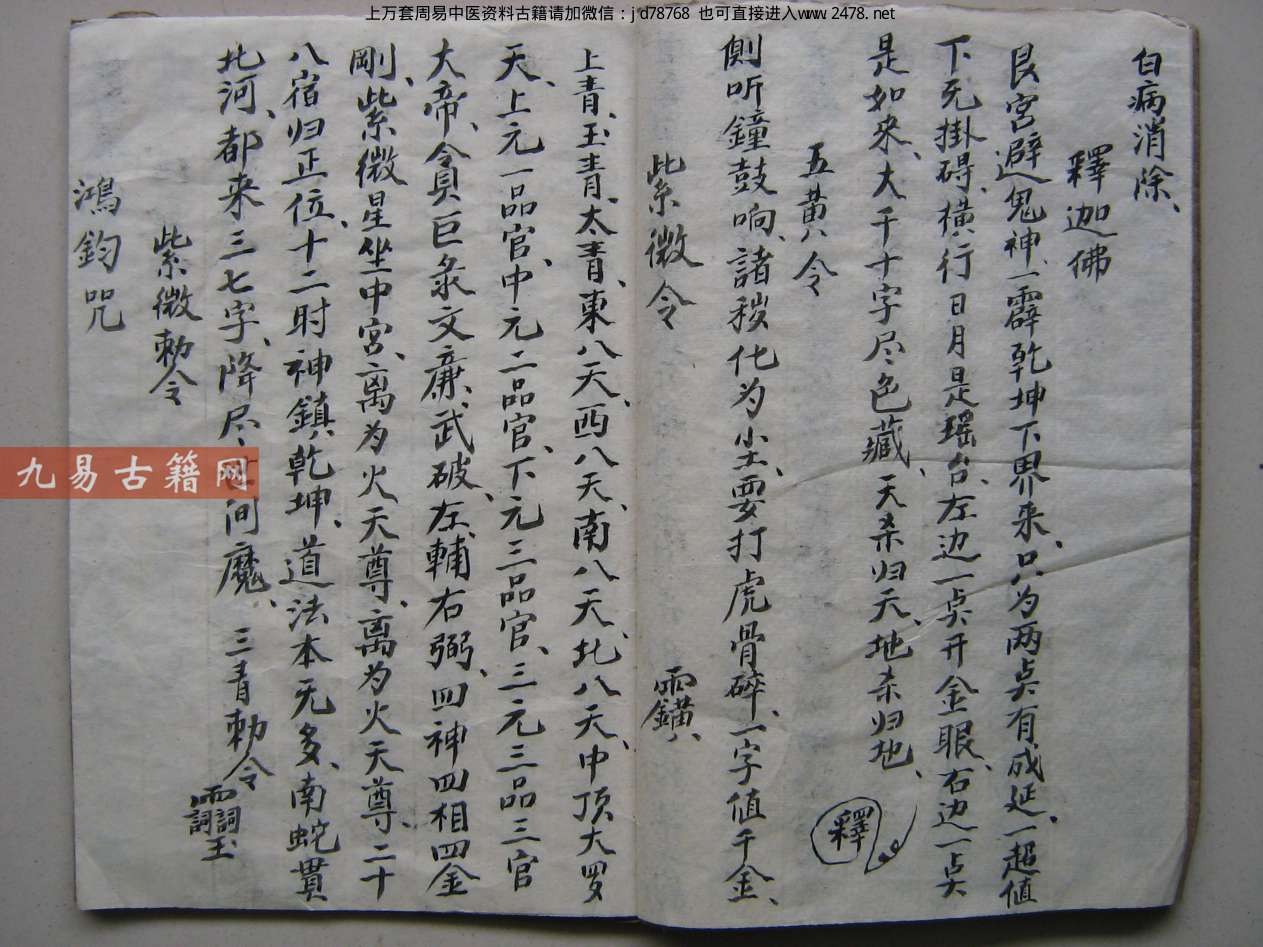 上万套周易中医资料古籍请加微信：jd78768 也可直接进入www.2478.net
白病消除、
釋迦佛
艮宮避鬼神、一霹乾坤下界来、只为两点有成延、一超值
下无掛碍、橫行日月是瑶台、左边一点开金眼、右边一点
是如来、大千十字尽色藏、天杀归天、地杀归地、
釋
五黄令
側听鐘鼓响、諸秽化为尘、要打虎骨碎、一字值千金、
紫微令
上青、玉青、太青、東八天、西八天、南八天、北八天、中顶大罗
天、上元一品官、中元二品官、下元三品官、三元三品三官
大帝、貪巨彔文亷、武破、左輔右弼、四神四相四金
剛、紫微星坐中宮、离为火天尊、离为火天尊、二十
八宿归正位、十二时神鎮乾坤、道法本无多、南蛇貫
北河、都来三七字、降尽世间魔、三青勅令
紫微勅令
鴻鈞咒
九易古籍网